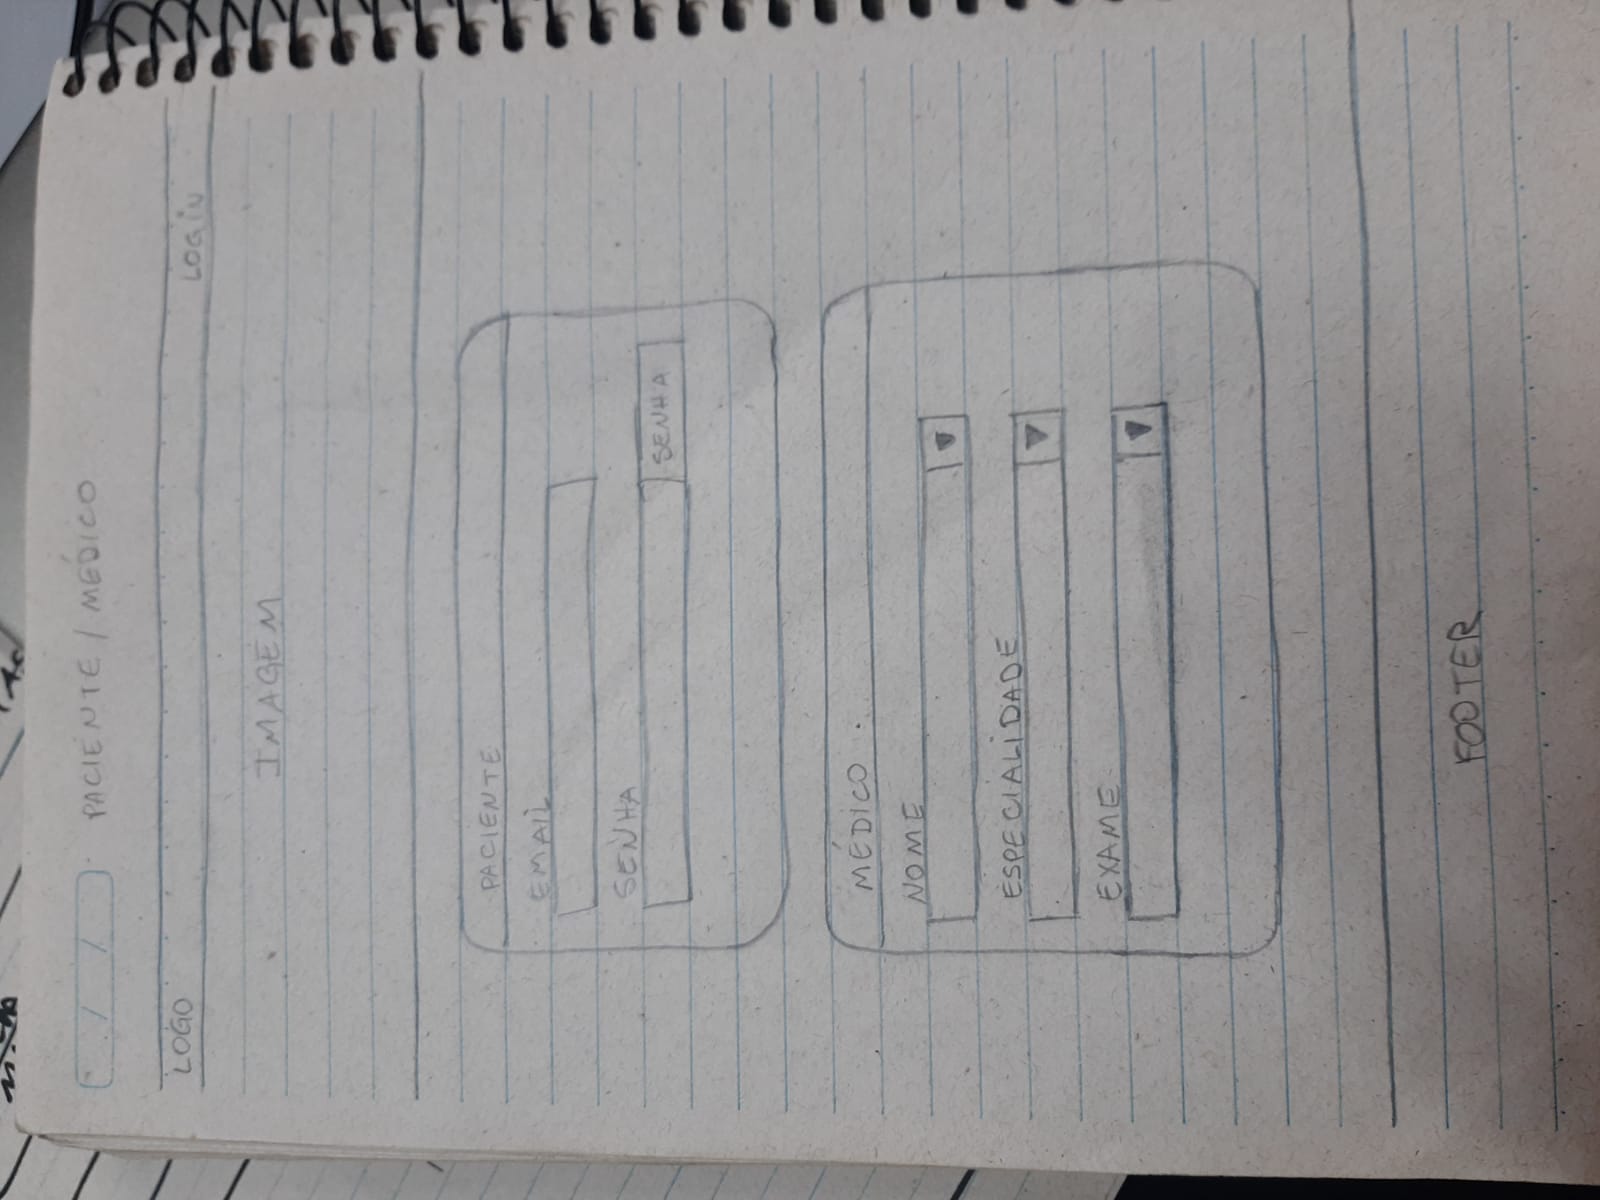 / / PACIENTE / MÉDICO
LOGO LOGIN
IMAGEM
PACIENTE
EMAIL
SENHA
SENHA
MÉDICO
NOME
ESPECIALIDADE
EXAME
FOOTER